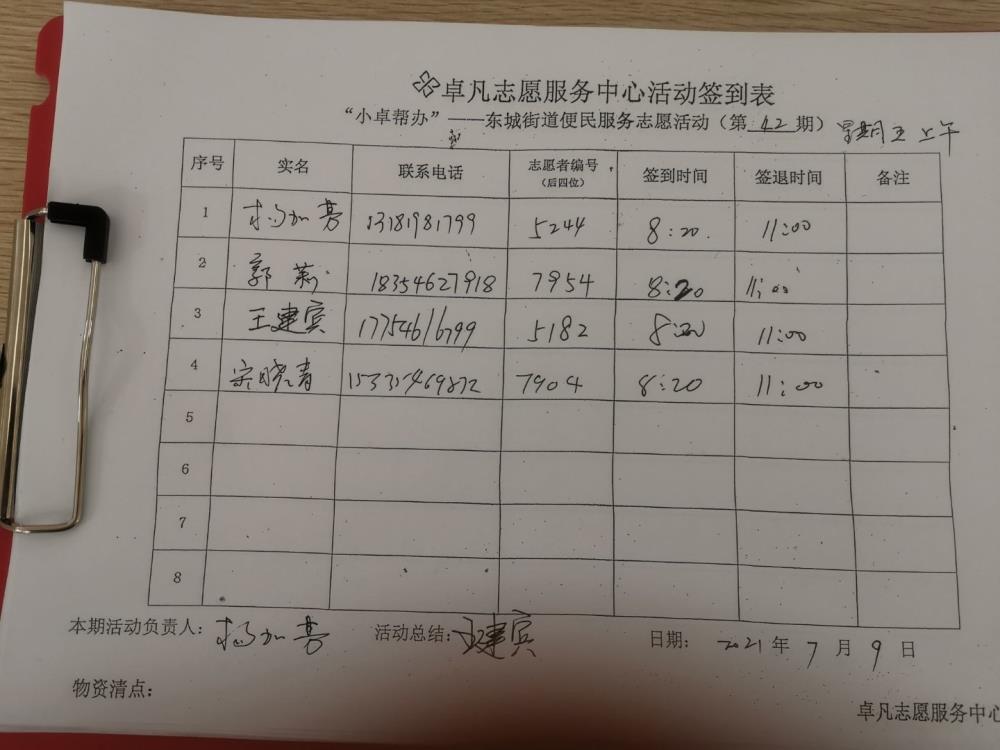 卓凡志愿服务中心活动签到表
“小卓帮办”——东城街道便民服务志愿活动（第 42 期） 星期五上午
序号 实名 联系电话 志愿者编号（后四位） 签到时间 签退时间 备注
1 杨加芳 13181981799 5244 8:20. 11:00
2 郭莉 18354627918 7954 8:20 11:00
3 王建宾 17754616799 5182 8:20 11:00
4 宋晓青 7904 8:20 11:00
5
6
7
8
本期活动负责人： 杨加芳 活动总结： 王建宾 日期： 2021 年 7 月 9 日
物资清点：
卓凡志愿服务中心